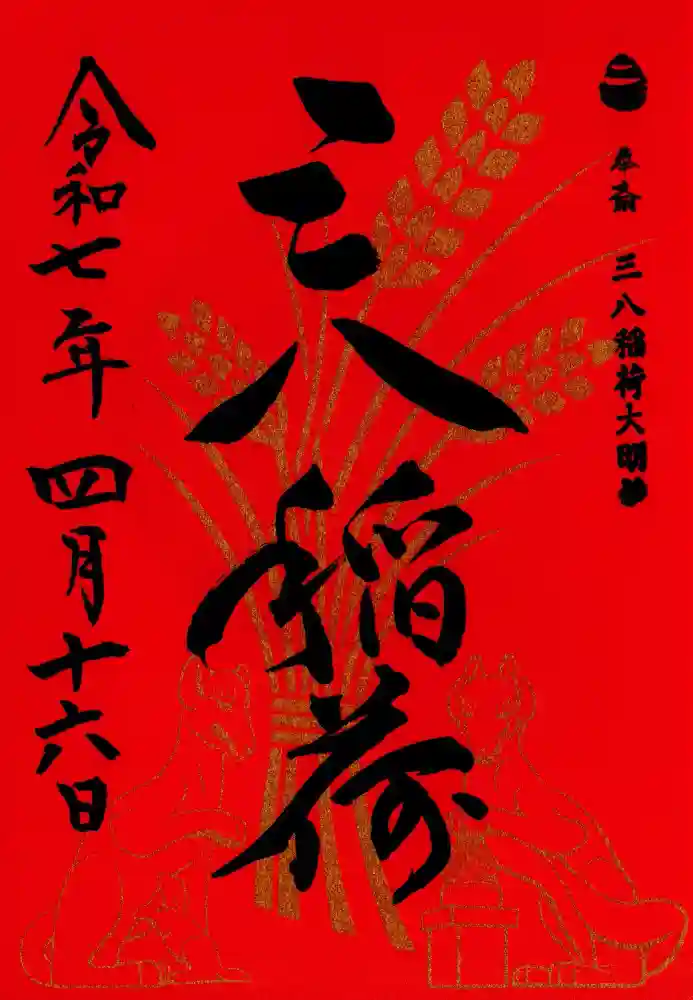 奉斎 三八稲荷大明神
三八稲荷
令和七年 四月十六日